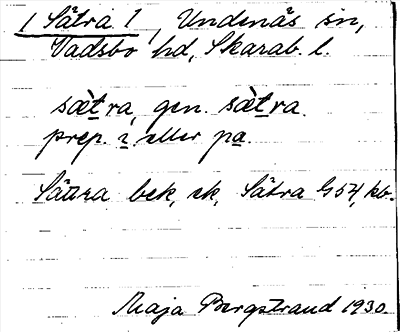 1 Sätra 1, Undenäs sn,
Vadsbo hd, Skarab. l.
sæ̀tra, gen. sæ̀tra.
prep. i eller på.
Sättra bek, ek, Sätra G54, kb.
Maja Bergstrand 1930.